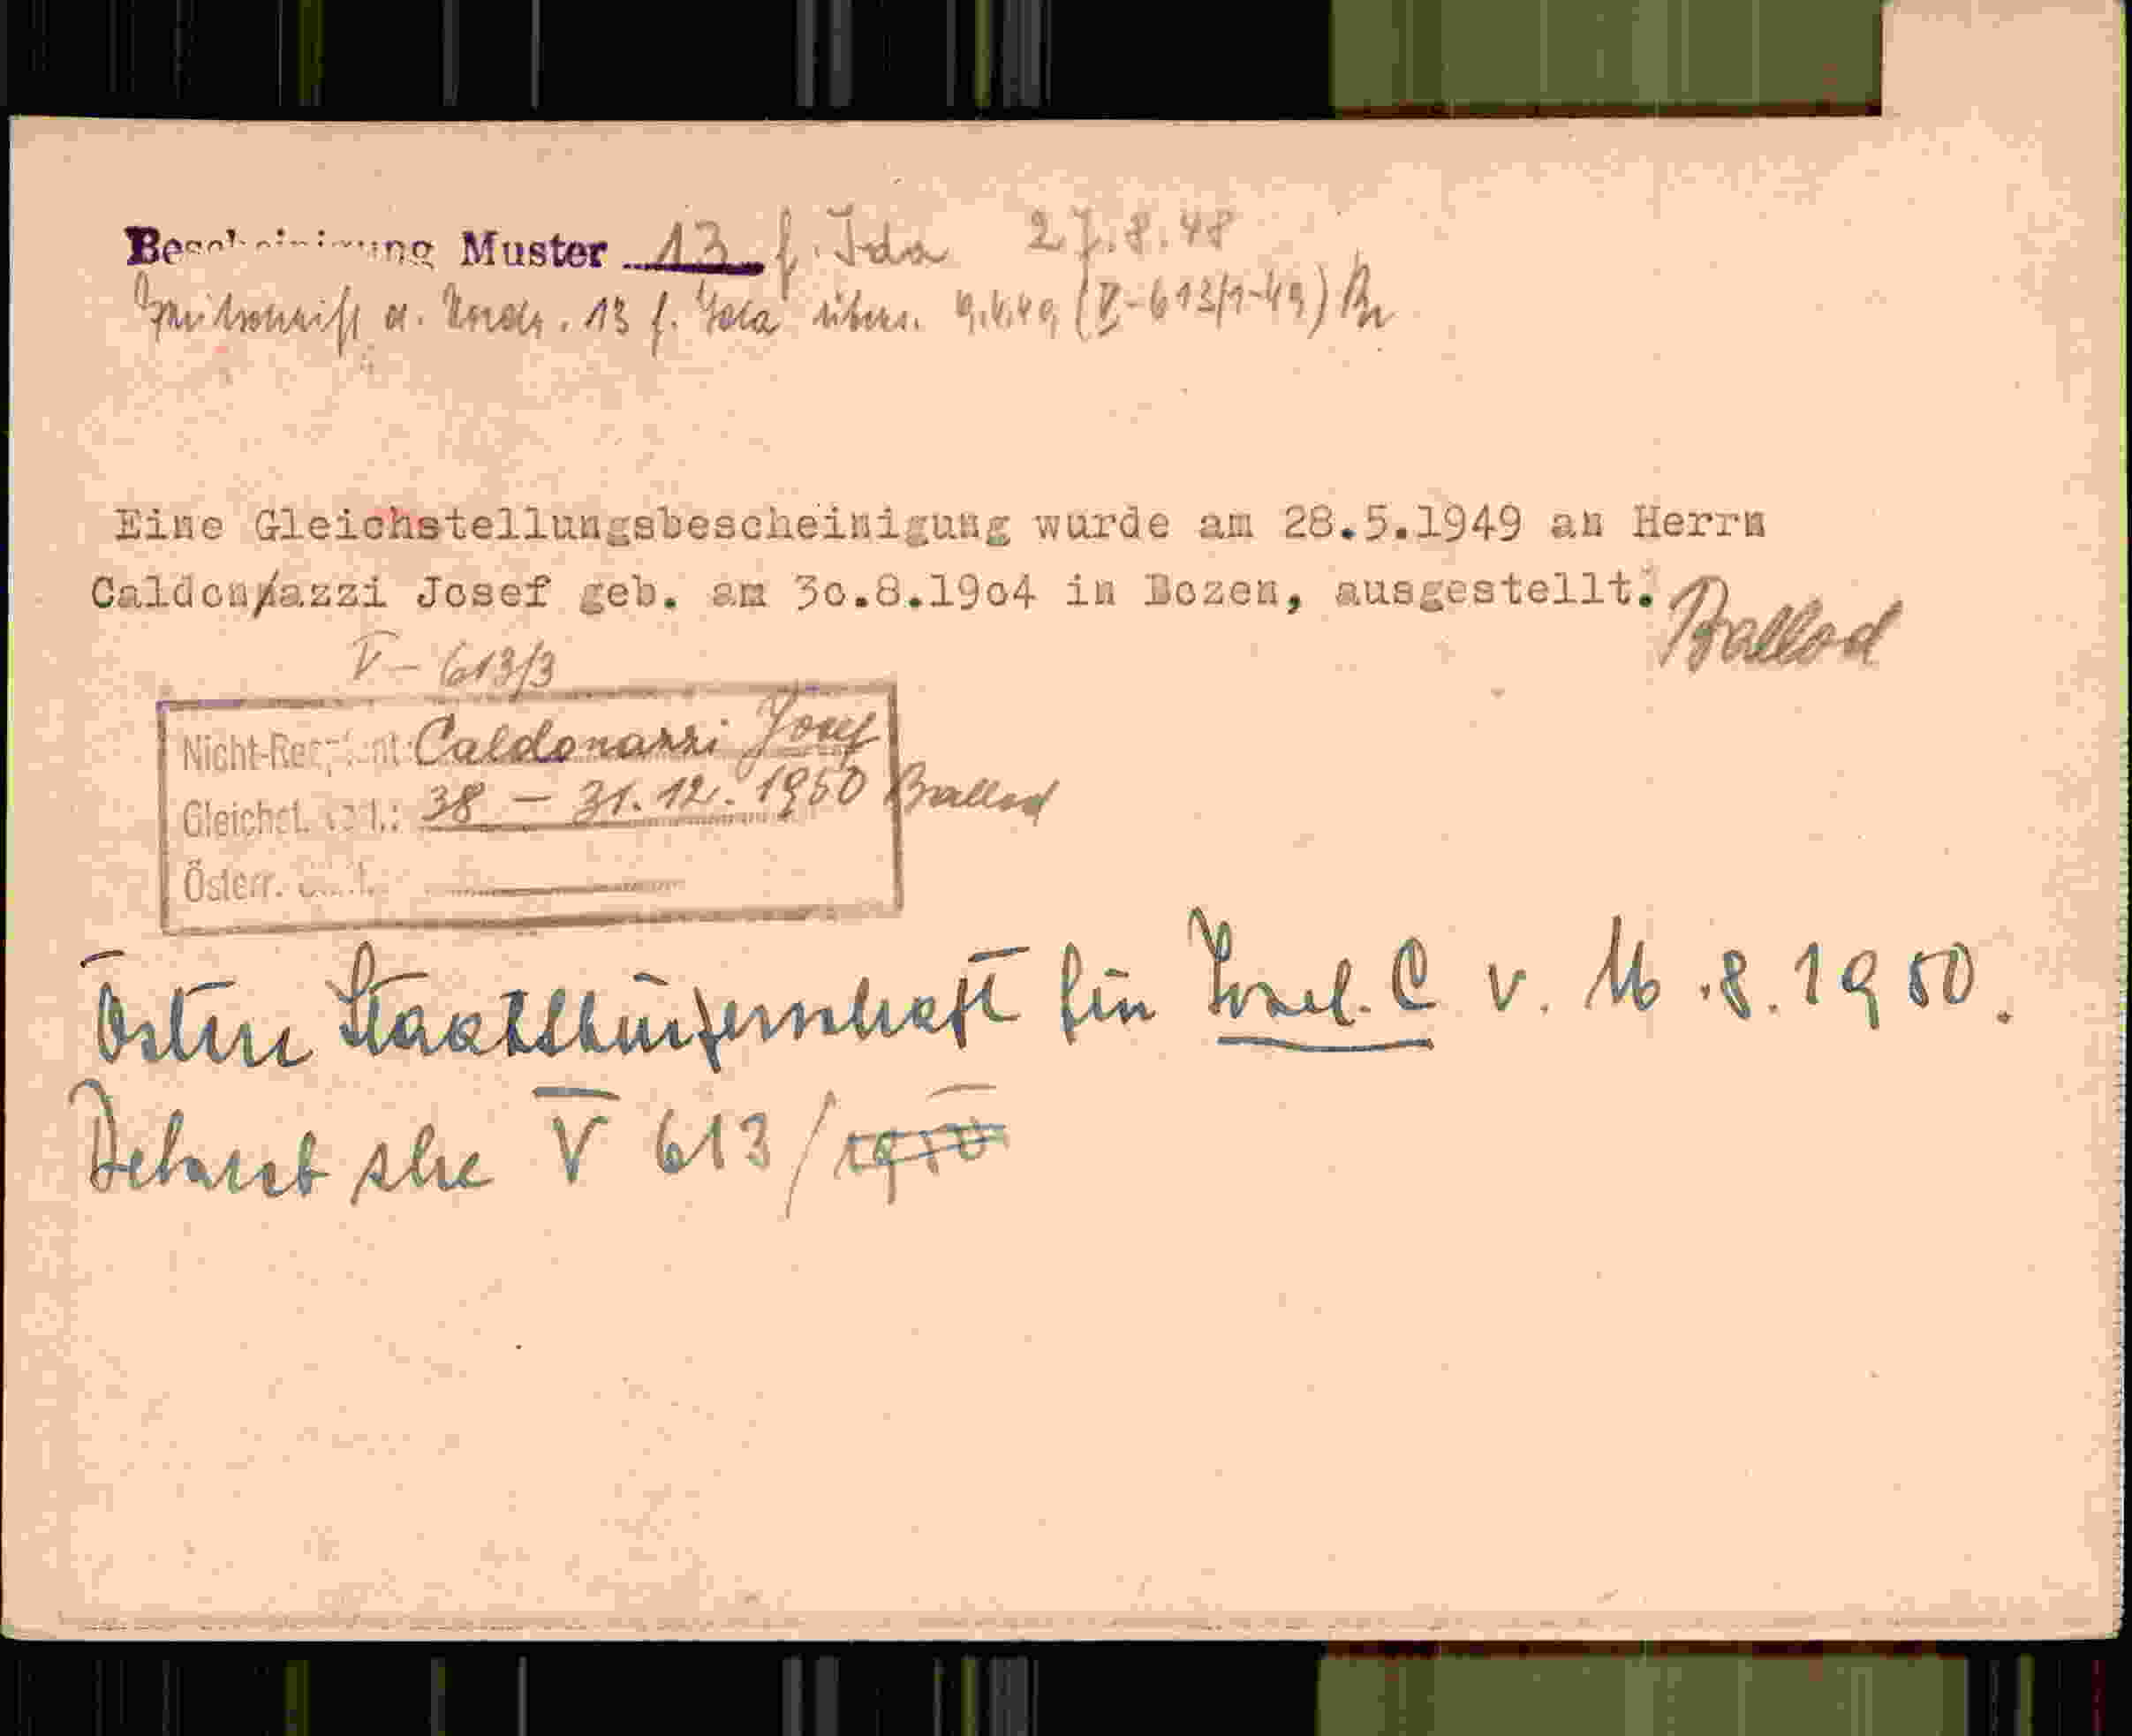 Bescheinigung Muster 13 f. Ida 27.8.48
13 f. Ida übers. 9.4.49 (V-613/1-49)
Eine Gleichstellungsbescheinigung wurde am 28.5.1949 an Herrn
Caldon/azzi Josef geb. am 30.8.1904 in Bozen, ausgestellt. Ballod
V - 613/3
Nicht-Reg Caldonazzi Josef
Gleichst. 38 - 31.12.1950 Ballod
Österr.
Österr Staatsbürgerschaft für Josef. C v. 16.8.1950.
V 613/1950